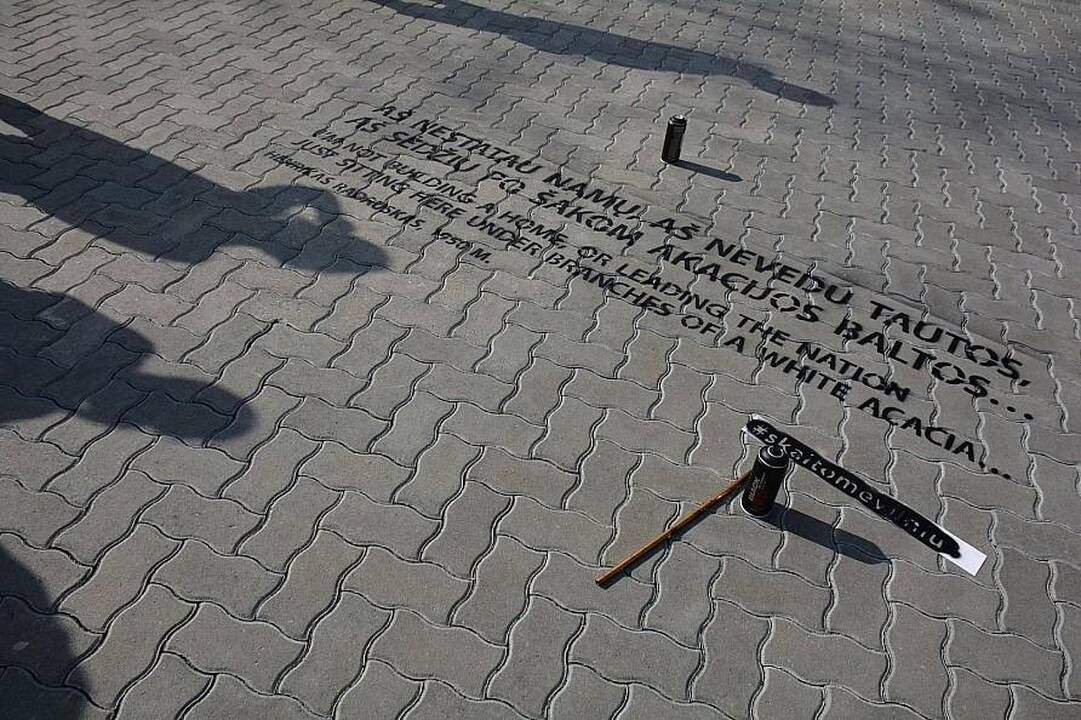 AŠ NESTATAU NAMŲ, AŠ NEVEDU TAUTOS,
AŠ SĖDŽIU PO ŠAKOM AKACIJOS BALTOS...
I'M NOT BUILDING A HOME, OR LEADING THE NATION
JUST SITTING HERE UNDER BRANCHES OF A WHITE ACACIA...
HENRIKAS RADAUSKAS, 1950 M.
#skaitomevilniu
BLACK